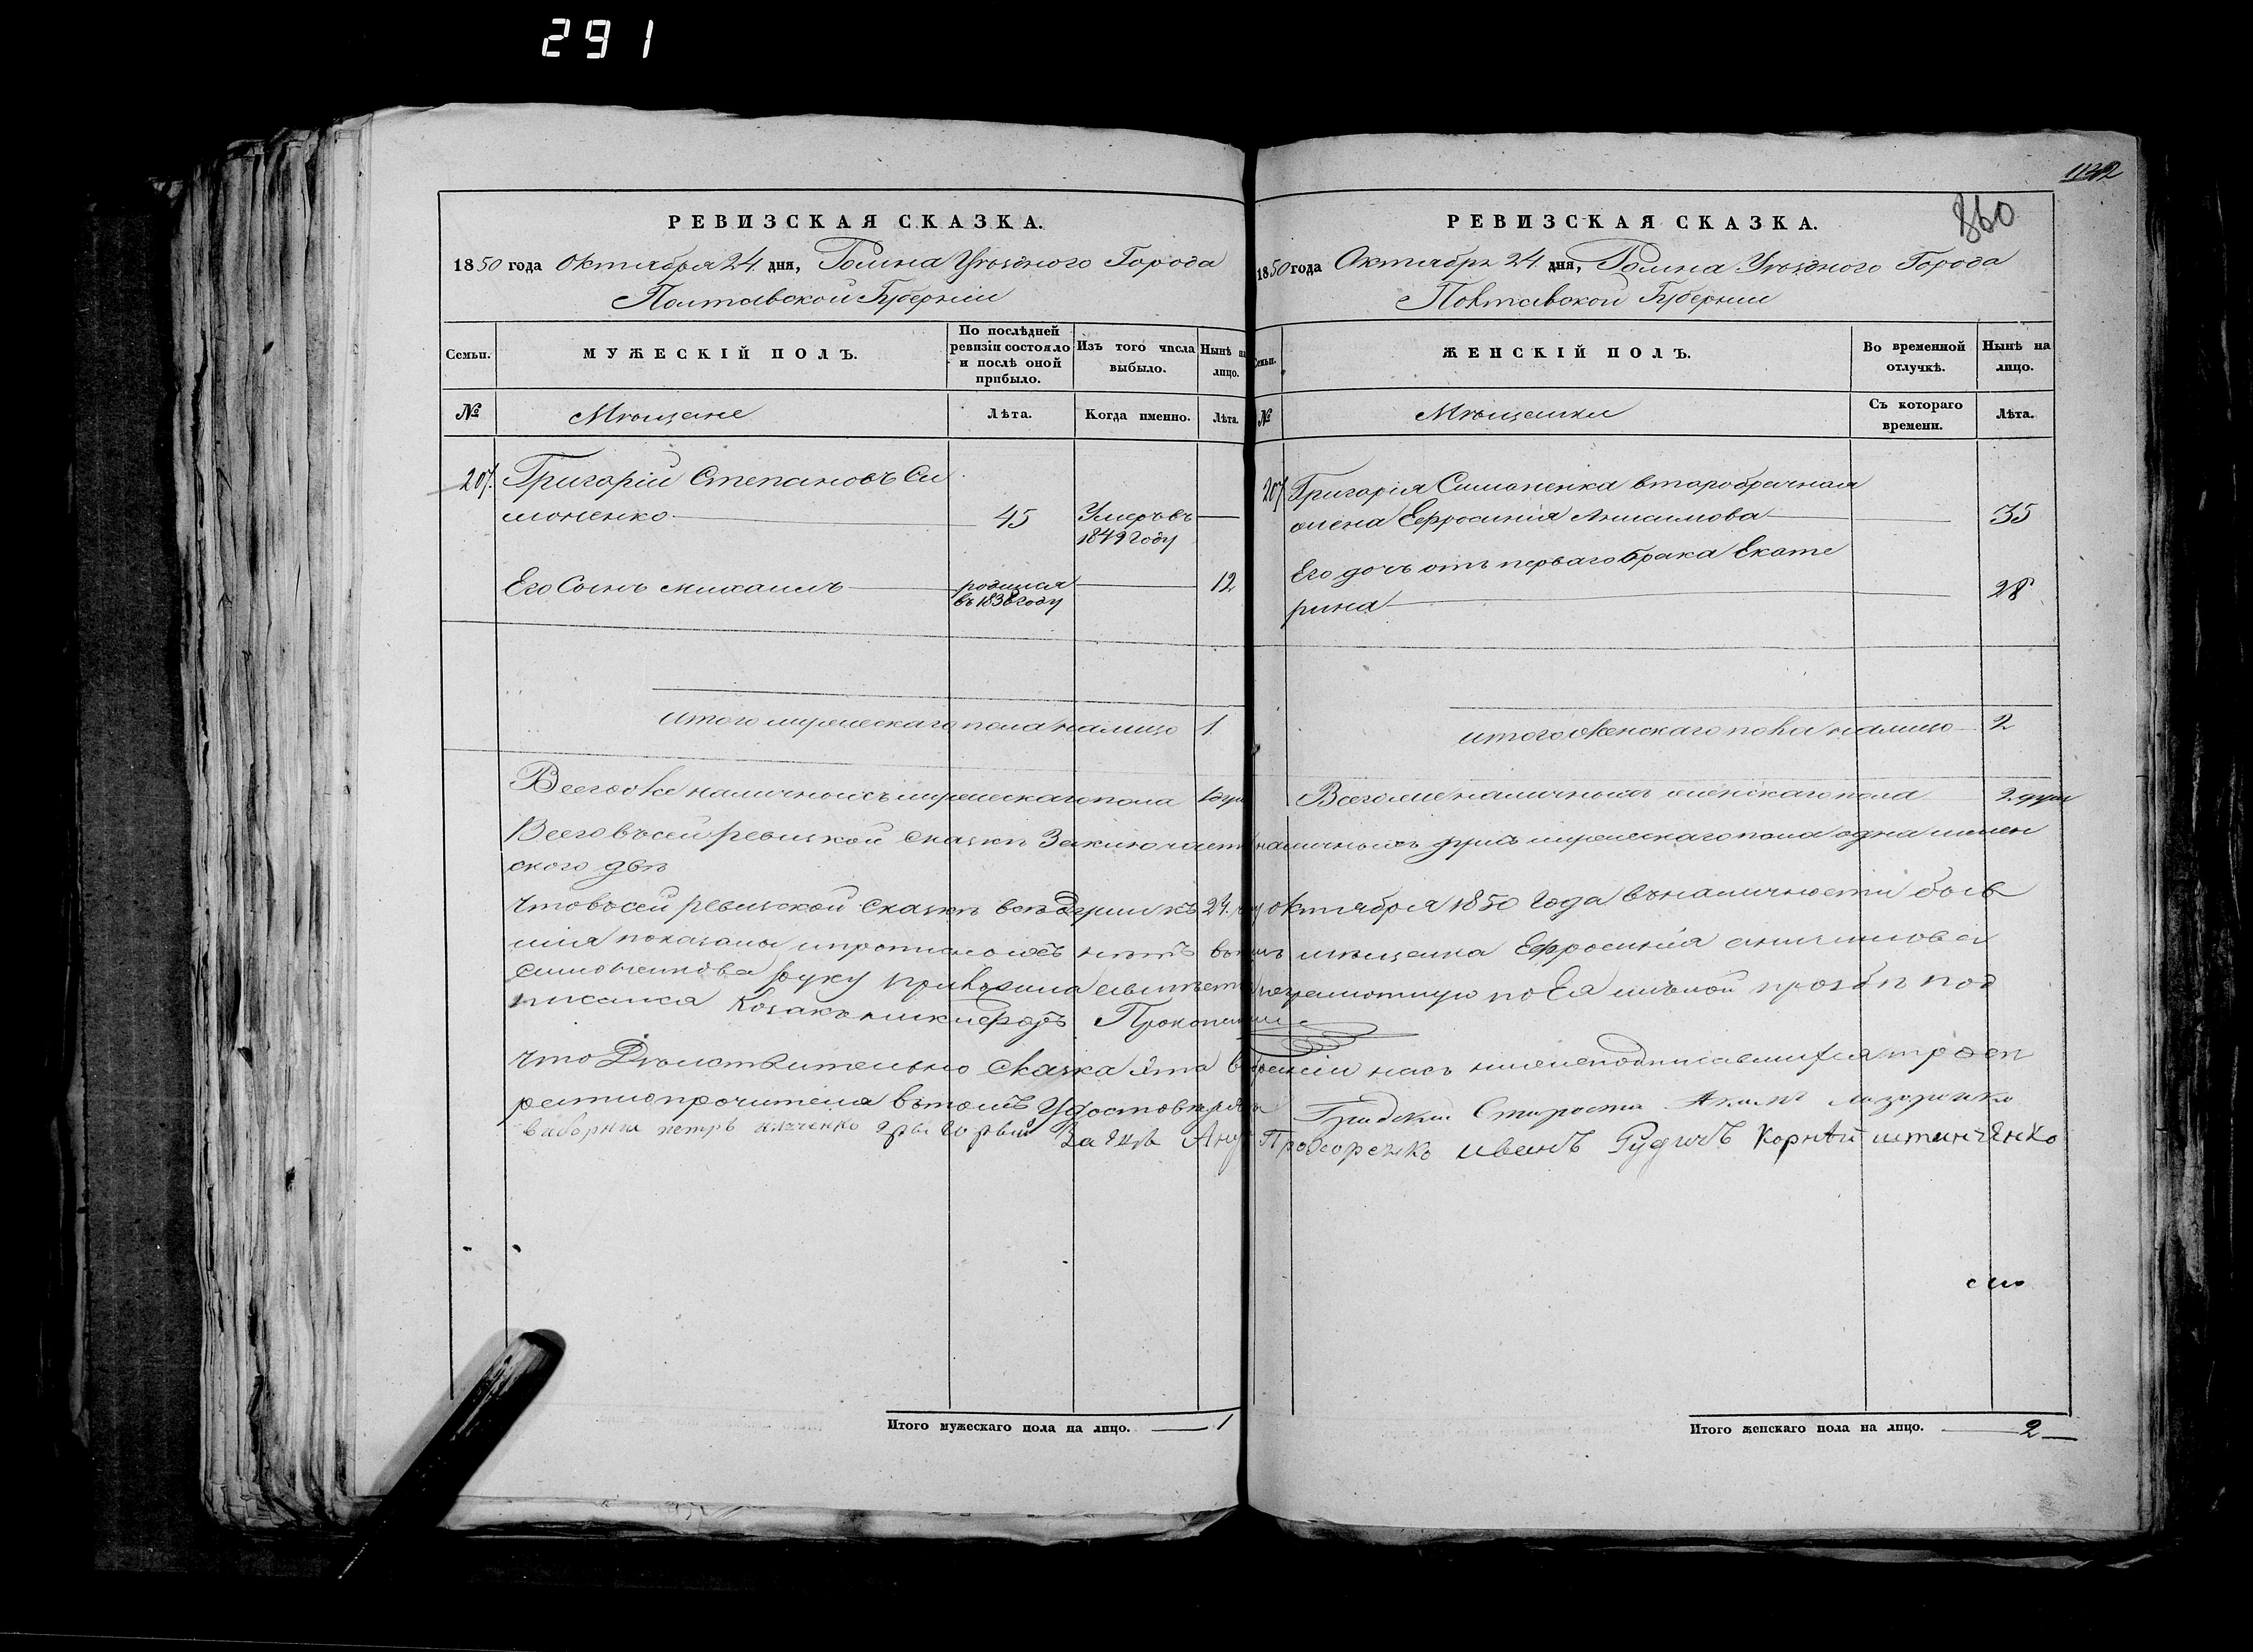 291
1132
860
РЕВИЗСКАЯ СКАЗКА.
1850 года Октября 24. дня, Ромна Уѣзднаго Города
Полтавской Губерніи
Семьи.
МУЖЕСКІЙ ПОЛЪ.
По послѣдней ревизіи состояло и послѣ оной прибыло.
Изъ того числа выбыло.
Нынѣ на лицо.
№
Мѣщане
Лѣта.
Когда именно.
Лѣта.
207.
Григорій Степановъ Си
моненко
45
Умеръ въ
1849 году
Его Сынъ михаилъ
родился
въ 1838 году
12
итого мужескаго пола на лицо 1
Всего же наличныхъ мужескаго пола 1 душ
РЕВИЗСКАЯ СКАЗКА.
1850 года Октября 24. дня, Ромна Уѣзднаго Города
Полтавской Губерніи
Семьи.
ЖЕНСКІЙ ПОЛЪ.
Во временной отлучкѣ.
Нынѣ на лицо.
№
Мѣщанки
Съ котораго времени.
Лѣта.
207
Григорія Симоненка второбрачная
жена Ефросинія Анисимова 35
Его дочь отъ перваго брака Екате
рина 28
итого женскаго пола на лицо 2
Всего же наличныхъ женскаго пола 2 души
Всего въ сей ревизской сказкѣ Заключается наличныхъ душъ мужескаго пола одна и жен
ского двѣ
Что въ сей ревизской сказкѣ всѣ души къ 24. му октября 1850 года въ наличности быв
шія показаны и прописныхъ нѣтъ въ мѣщанка Ефросинія анисимова
симоненкова руку приложила а вмѣсто неграмотную по Ея личной прозбѣ под
писался Козакъ никифоръ
что Дѣйствительно сказка эта в нас нижеподписавшихся
прочитена в томъ Удостовѣряемъ Градскій Староста Акимъ
виборны петръ Заяцъ иванъ Рудичъ Корнѣй
Итого мужескаго пола на лицо. 1
Итого женскаго пола на лицо. 2